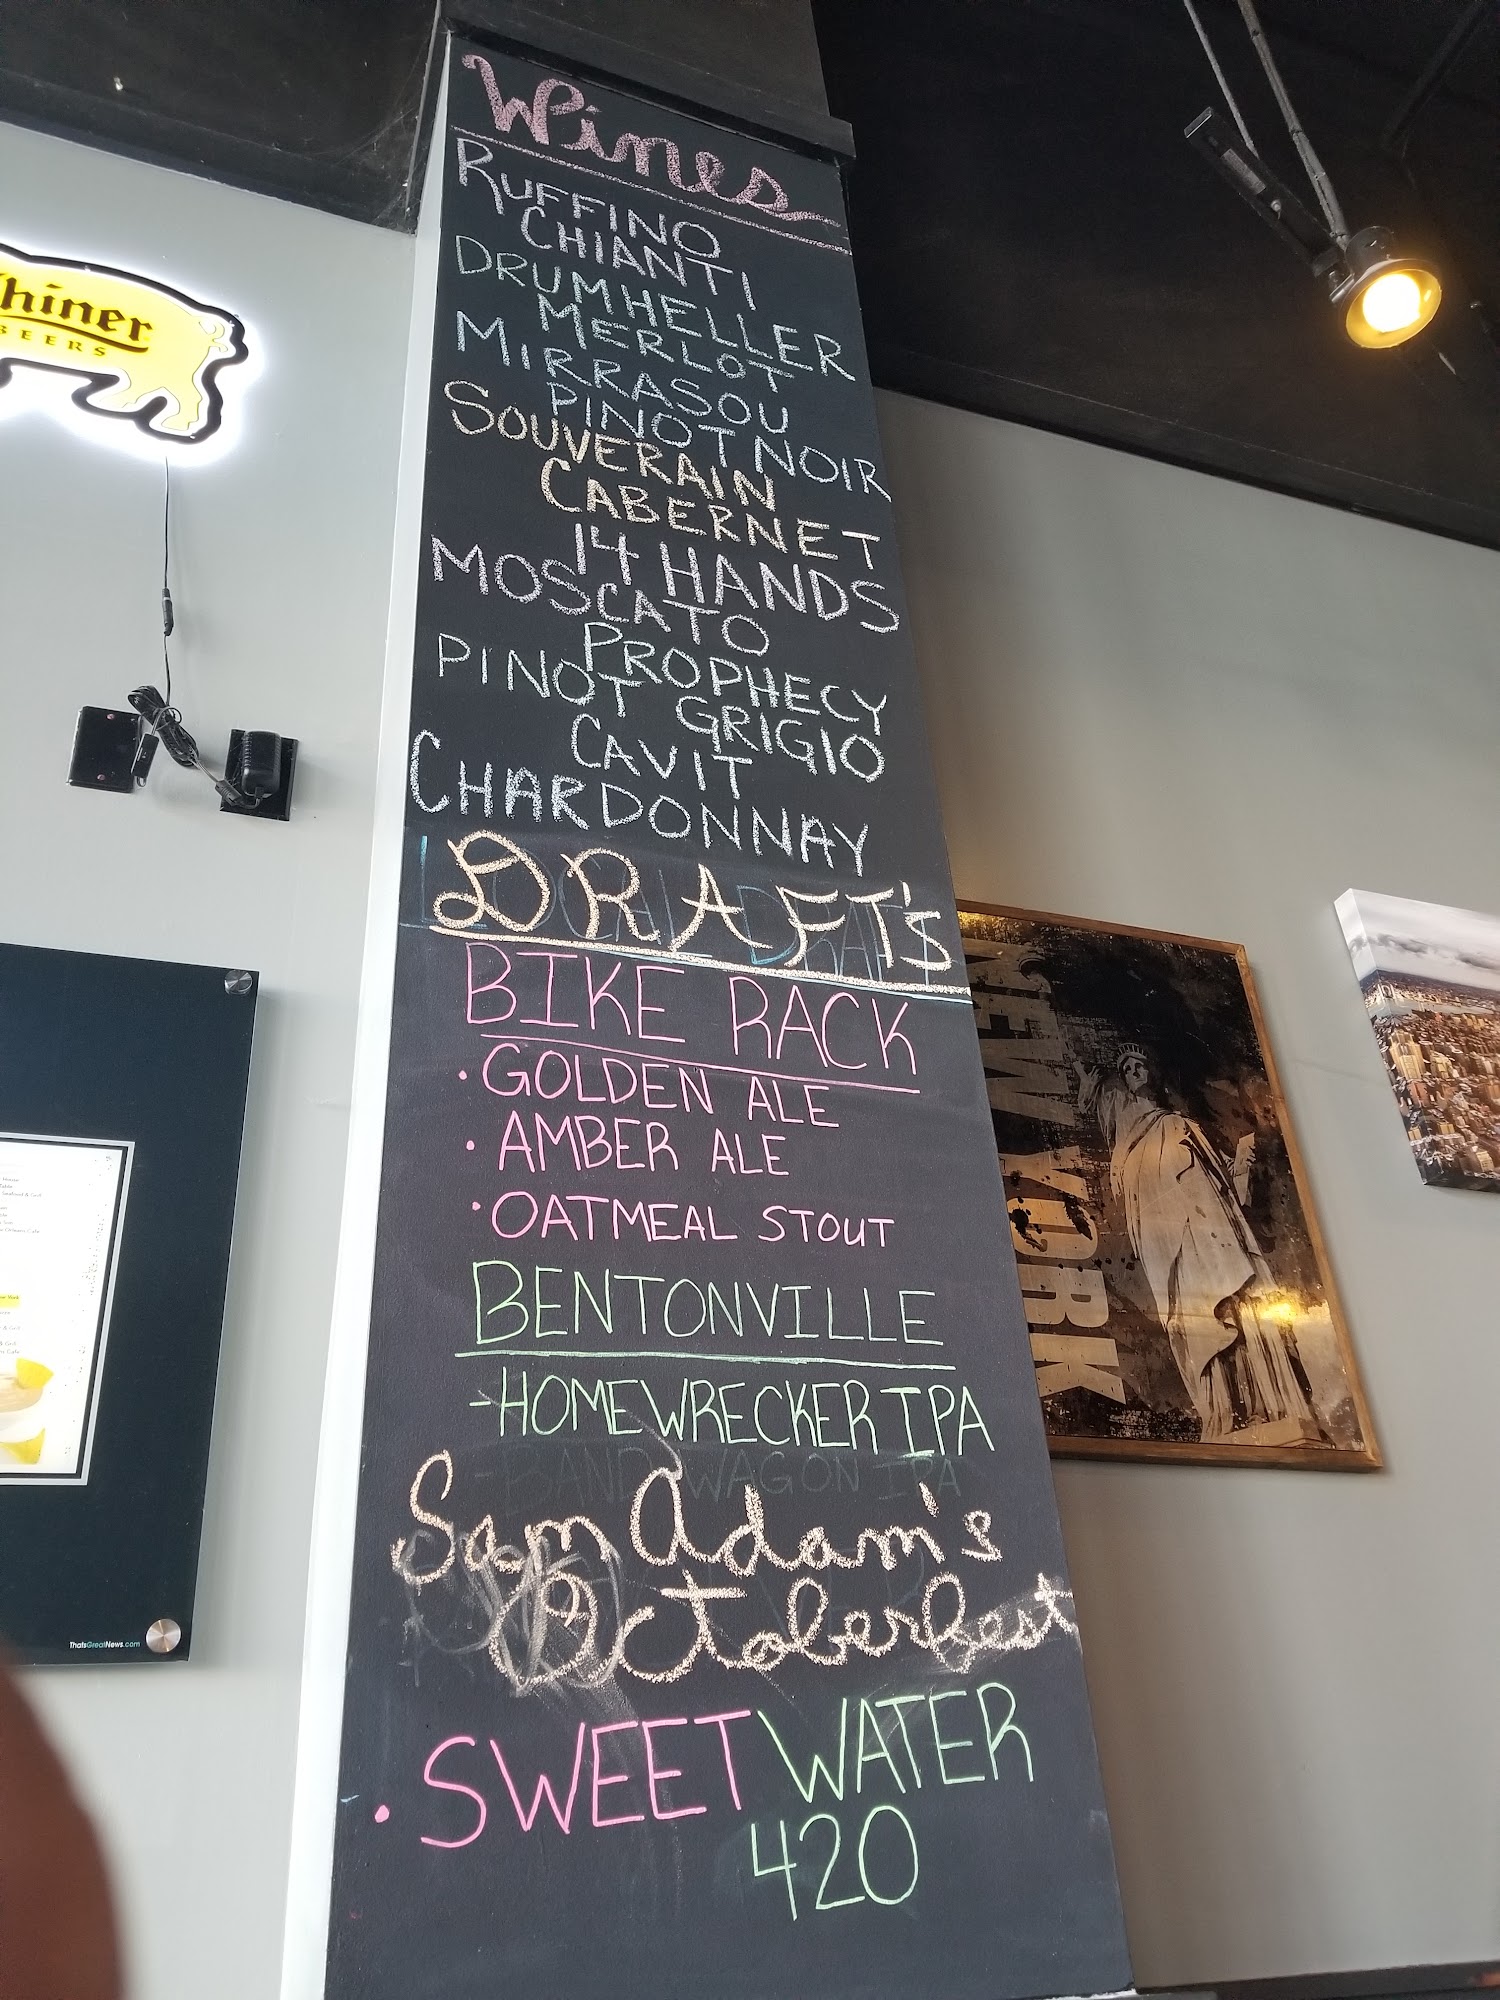 Wines
RUFFINO
CHIANTI
DRUMHELLER
MERLOT
MIRRASOU
PINOT NOIR
SOUVERAIN
CABERNET
14 HANDS
MOSCATO
PROPHECY
PINOT GRIGIO
CAVIT
CHARDONNAY
DRAFT's
BIKE RACK
• GOLDEN ALE
• AMBER ALE
• OATMEAL STOUT
BENTONVILLE
- HOMEWRECKER IPA
- BANDWAGON IPA
Sam Adam's
Octoberfest
• SWEETWATER
420
hiner
BEERS
NEW YORK
ThatsGreatNews.com